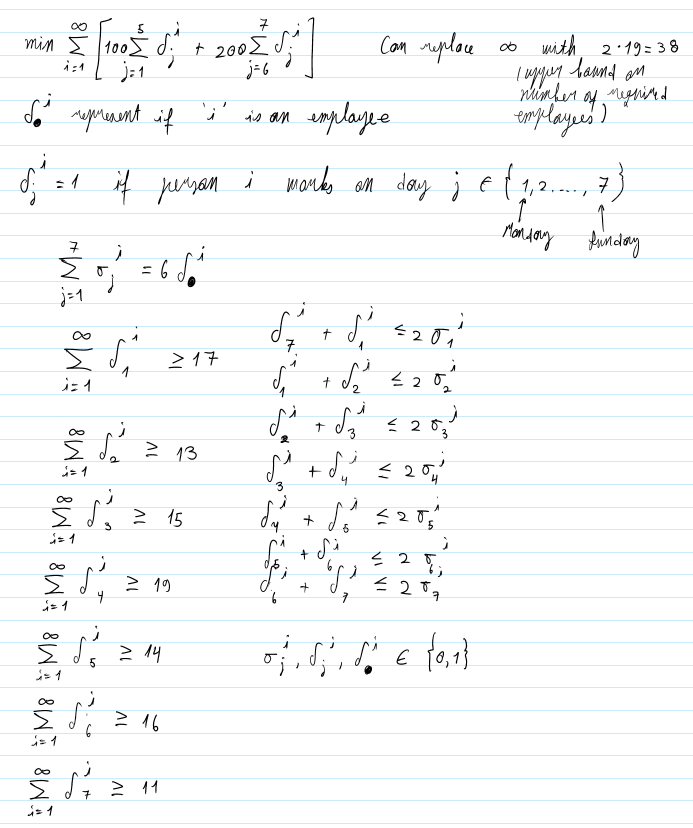 min ∑_{i=1}^{∞} [100 ∑_{j=1}^{5} δ_j^i + 200 ∑_{j=6}^{7} δ_j^i] Can replace ∞ with 2·19=38
(upper bound on
number of required
employees)
δ_•^i represent if 'i' is an employee
δ_j^i = 1 if person i works on day j ∈ {1,2....,7}
Monday Sunday
∑_{j=1}^{7} σ_j^i = 6 δ_•^i
∑_{i=1}^{∞} δ_1^i ≥ 17
∑_{i=1}^{∞} δ_2^i ≥ 13
∑_{i=1}^{∞} δ_3^i ≥ 15
∑_{i=1}^{∞} δ_4^i ≥ 19
∑_{i=1}^{∞} δ_5^i ≥ 14
∑_{i=1}^{∞} δ_6^i ≥ 16
∑_{i=1}^{∞} δ_7^i ≥ 11
δ_7^i + δ_1^i ≤ 2 σ_1^i
δ_1^i + δ_2^i ≤ 2 σ_2^i
δ_2^i + δ_3^i ≤ 2 σ_3^i
δ_3^i + δ_4^i ≤ 2 σ_4^i
δ_4^i + δ_5^i ≤ 2 σ_5^i
δ_5^i + δ_6^i ≤ 2 σ_6^i
δ_6^i + δ_7^i ≤ 2 σ_7^i
σ_j^i, δ_j^i, δ_•^i ∈ {0,1}